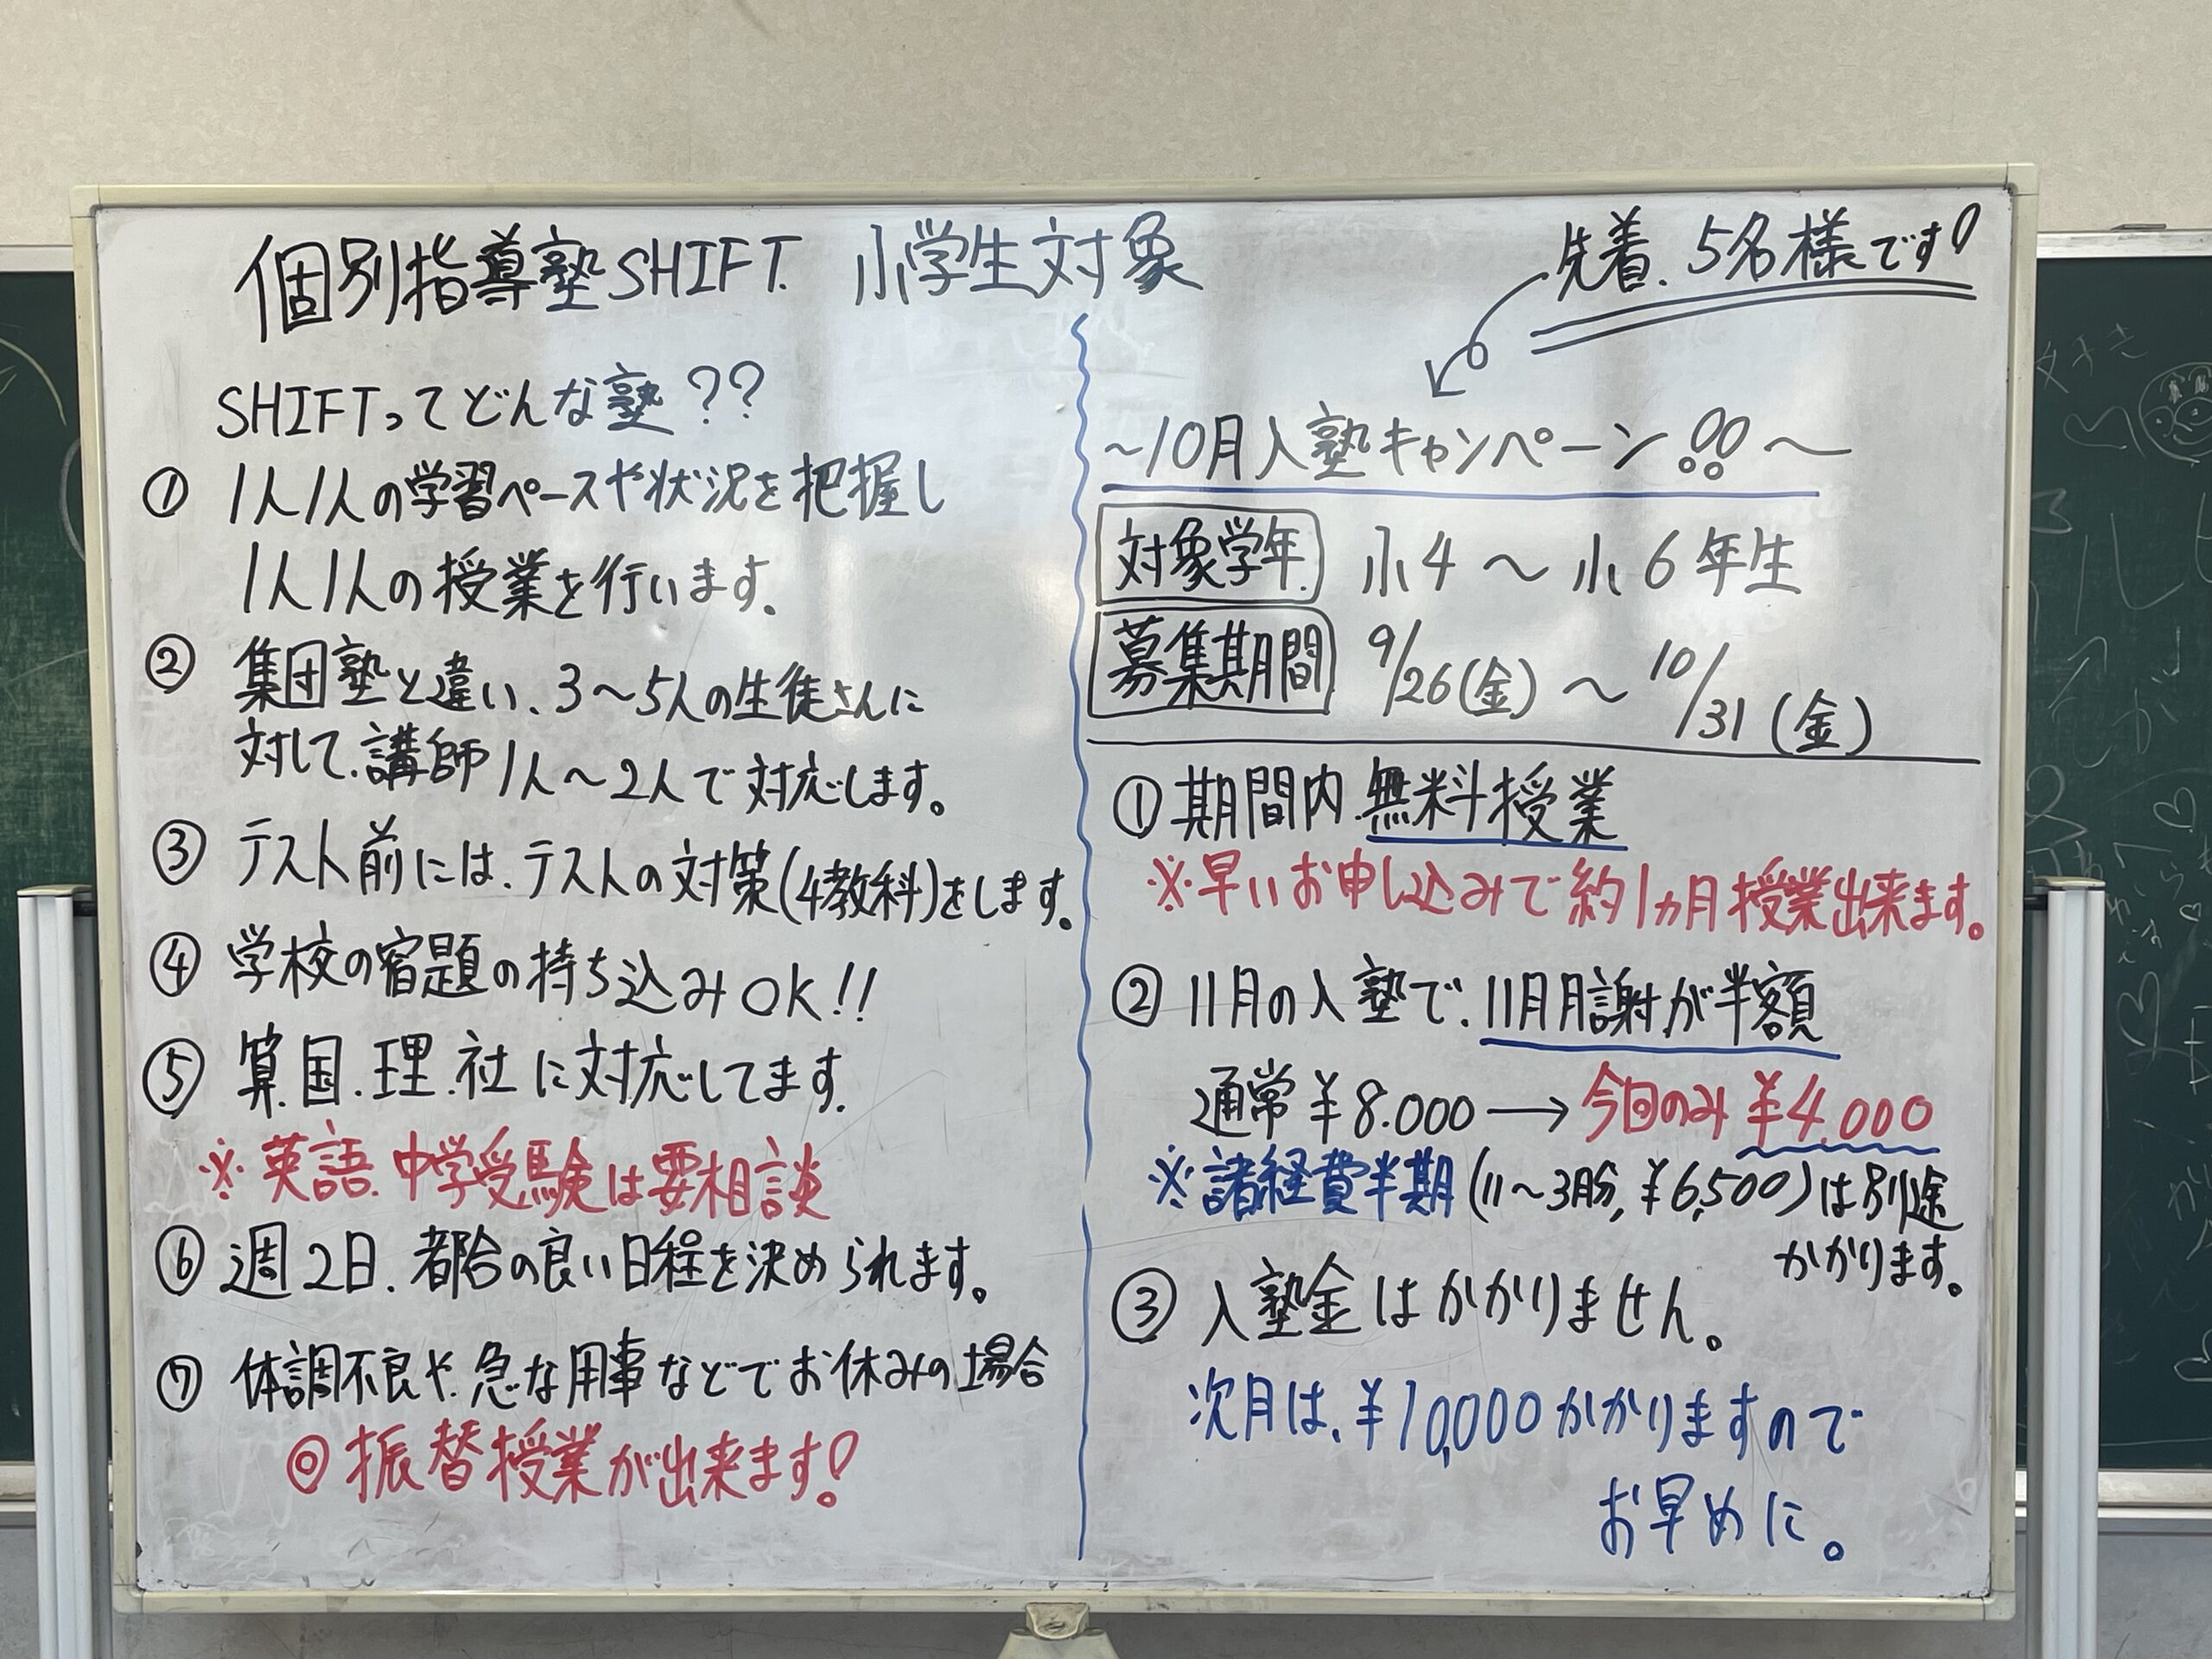 個別指導塾SHIFT. 小学生対象
SHIFTってどんな塾??
① 1人1人の学習ペースや状況を把握し
1人1人の授業を行います。
② 集団塾と違い、3〜5人の生徒さんに
対して、講師1人〜2人で対応します。
③ テスト前には、テストの対策(4教科)をします。
④ 学校の宿題の持ち込みOK!!
⑤ 算.国.理.社に対応してます.
※英語.中学受験は要相談
⑥ 週2日.都合の良い日程を決められます。
⑦ 体調不良や.急な用事などでお休みの場合
◎振替授業が出来ます!
先着.5名様です!
〜10月入塾キャンペーン!!〜
対象学年. 小4〜小6年生
募集期間 9/26(金)〜10/31(金)
①期間内.無料授業
※早いお申し込みで約1ヵ月授業出来ます。
② 11月の入塾で.11月月謝が半額
通常¥8.000→今回のみ¥4.000
※諸経費半期(11〜3月分,¥6,500)は別途
かかります。
③ 入塾金はかかりません。
次月は、¥10,000かかりますので
お早めに。